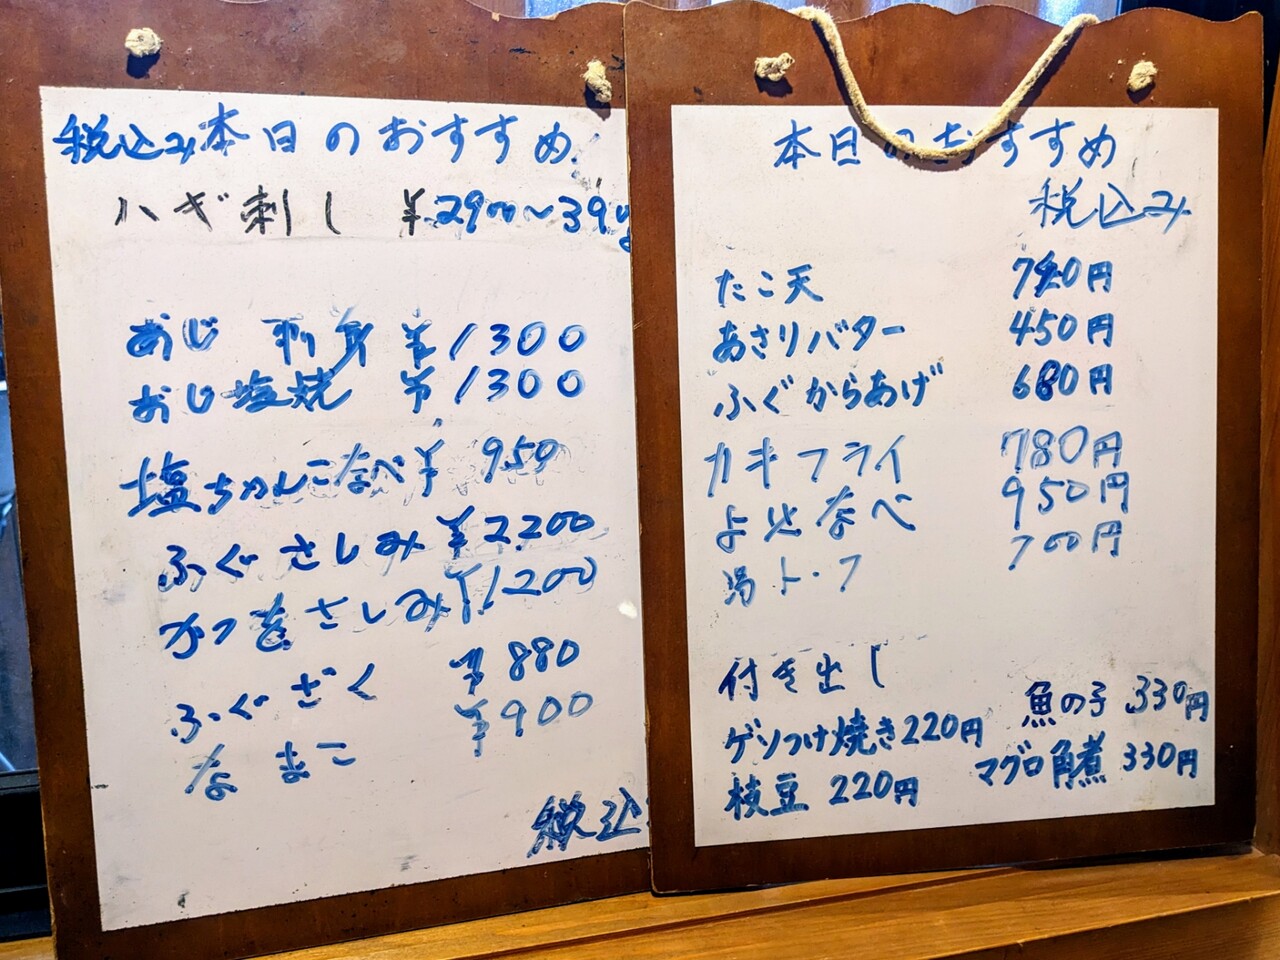 税込み本日のおすすめ
ハギ刺し ¥2900〜390
あじ 刺身 ¥1300
あじ塩焼 ¥1300
塩ちゃんこなべ ¥950
ふぐさしみ ¥2.200
かつをさしみ ¥1200
ふぐざく ¥880
なまこ ¥900
税込
本日のおすすめ
税込み
たこ天 780円
あさりバター 450円
ふぐからあげ 680円
カキフライ 780円
よせなべ 950円
湯ト・フ 700円
付き出し
ゲソつけ焼き220円
魚の子 330円
枝豆 220円
マグロ角煮 330円